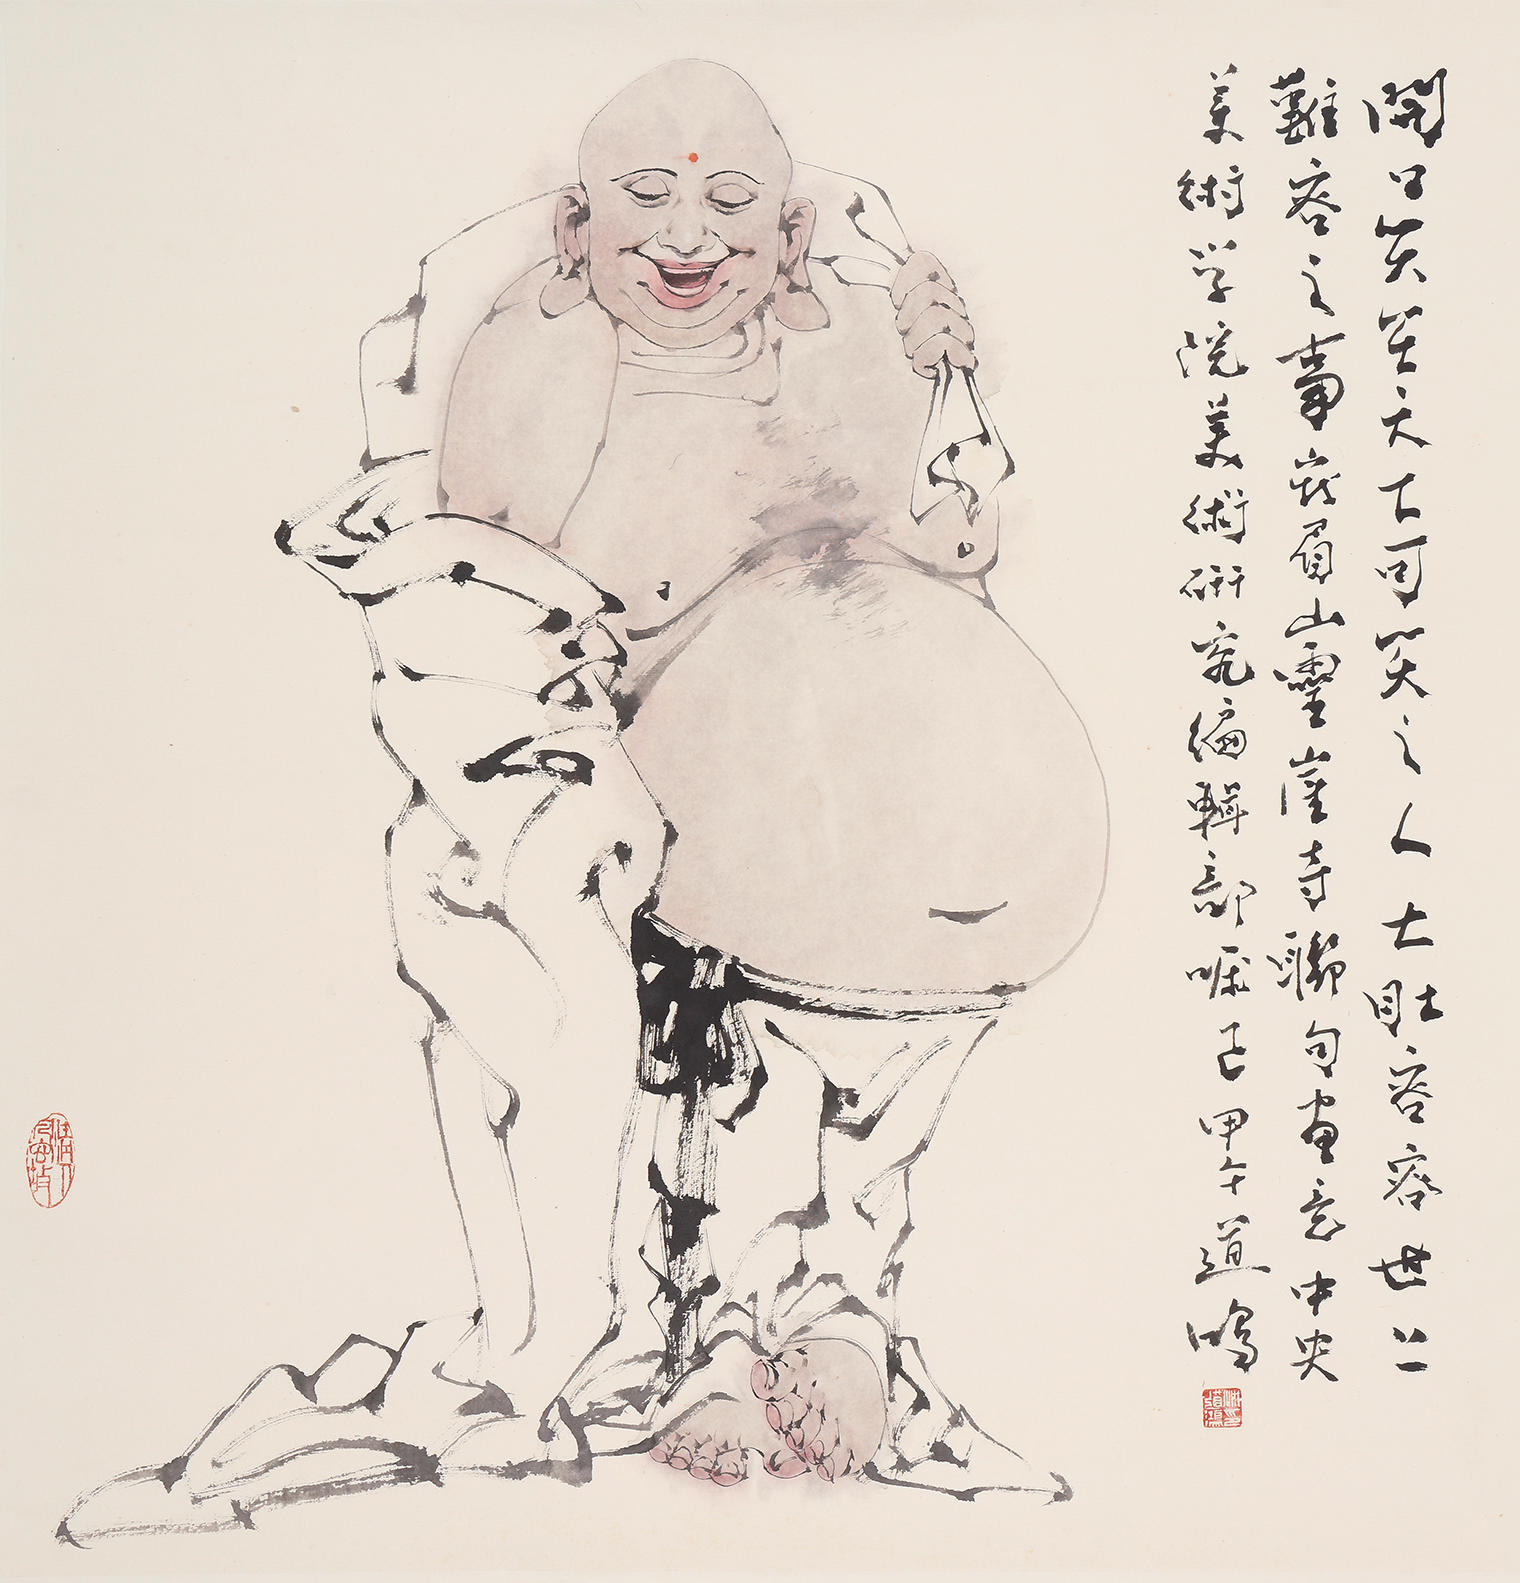 開口笑笑天下可笑之人大肚容容世上
難容之事峨眉山靈崖寺聯句畫意中央
美術学院美術研究編輯部嘱正甲午道鴻